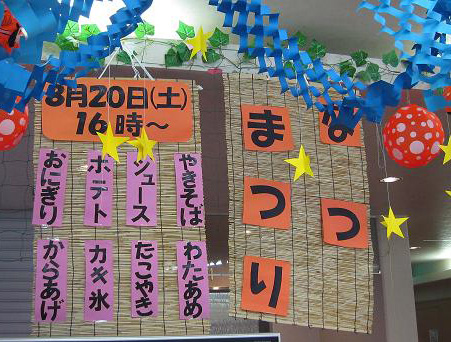 8月20日(土)
16時～
やきそば
ジュース
ポテト
おにぎり
わたあめ
たこやき
カキ氷
からあげ
なつ
まつり